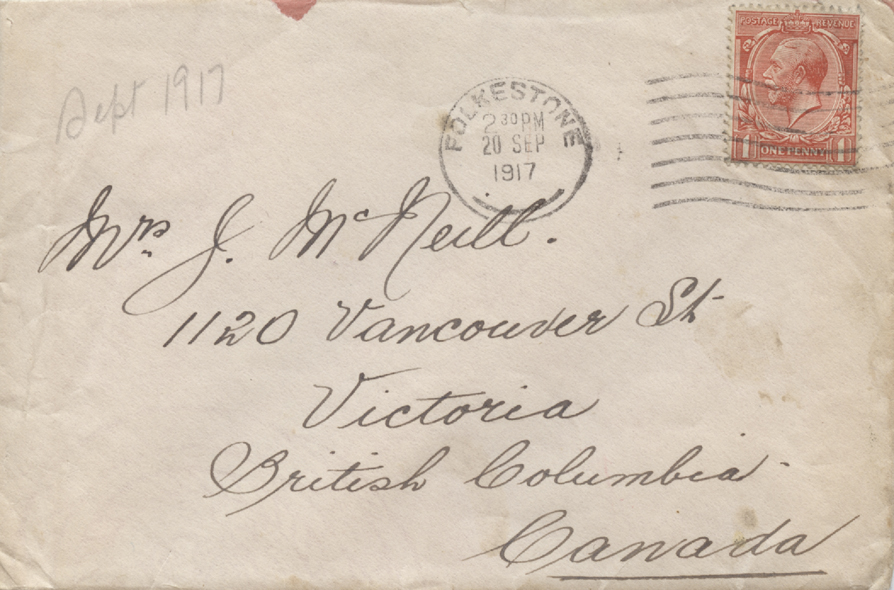 POSTAGE REVENUE
Sept 1917
FOLKESTONE
2 30 PM
20 SEP
1917
1 ONE PENNY 1
Mrs. J. McNeill.
1120 Vancouver St
Victoria
British Columbia
Canada